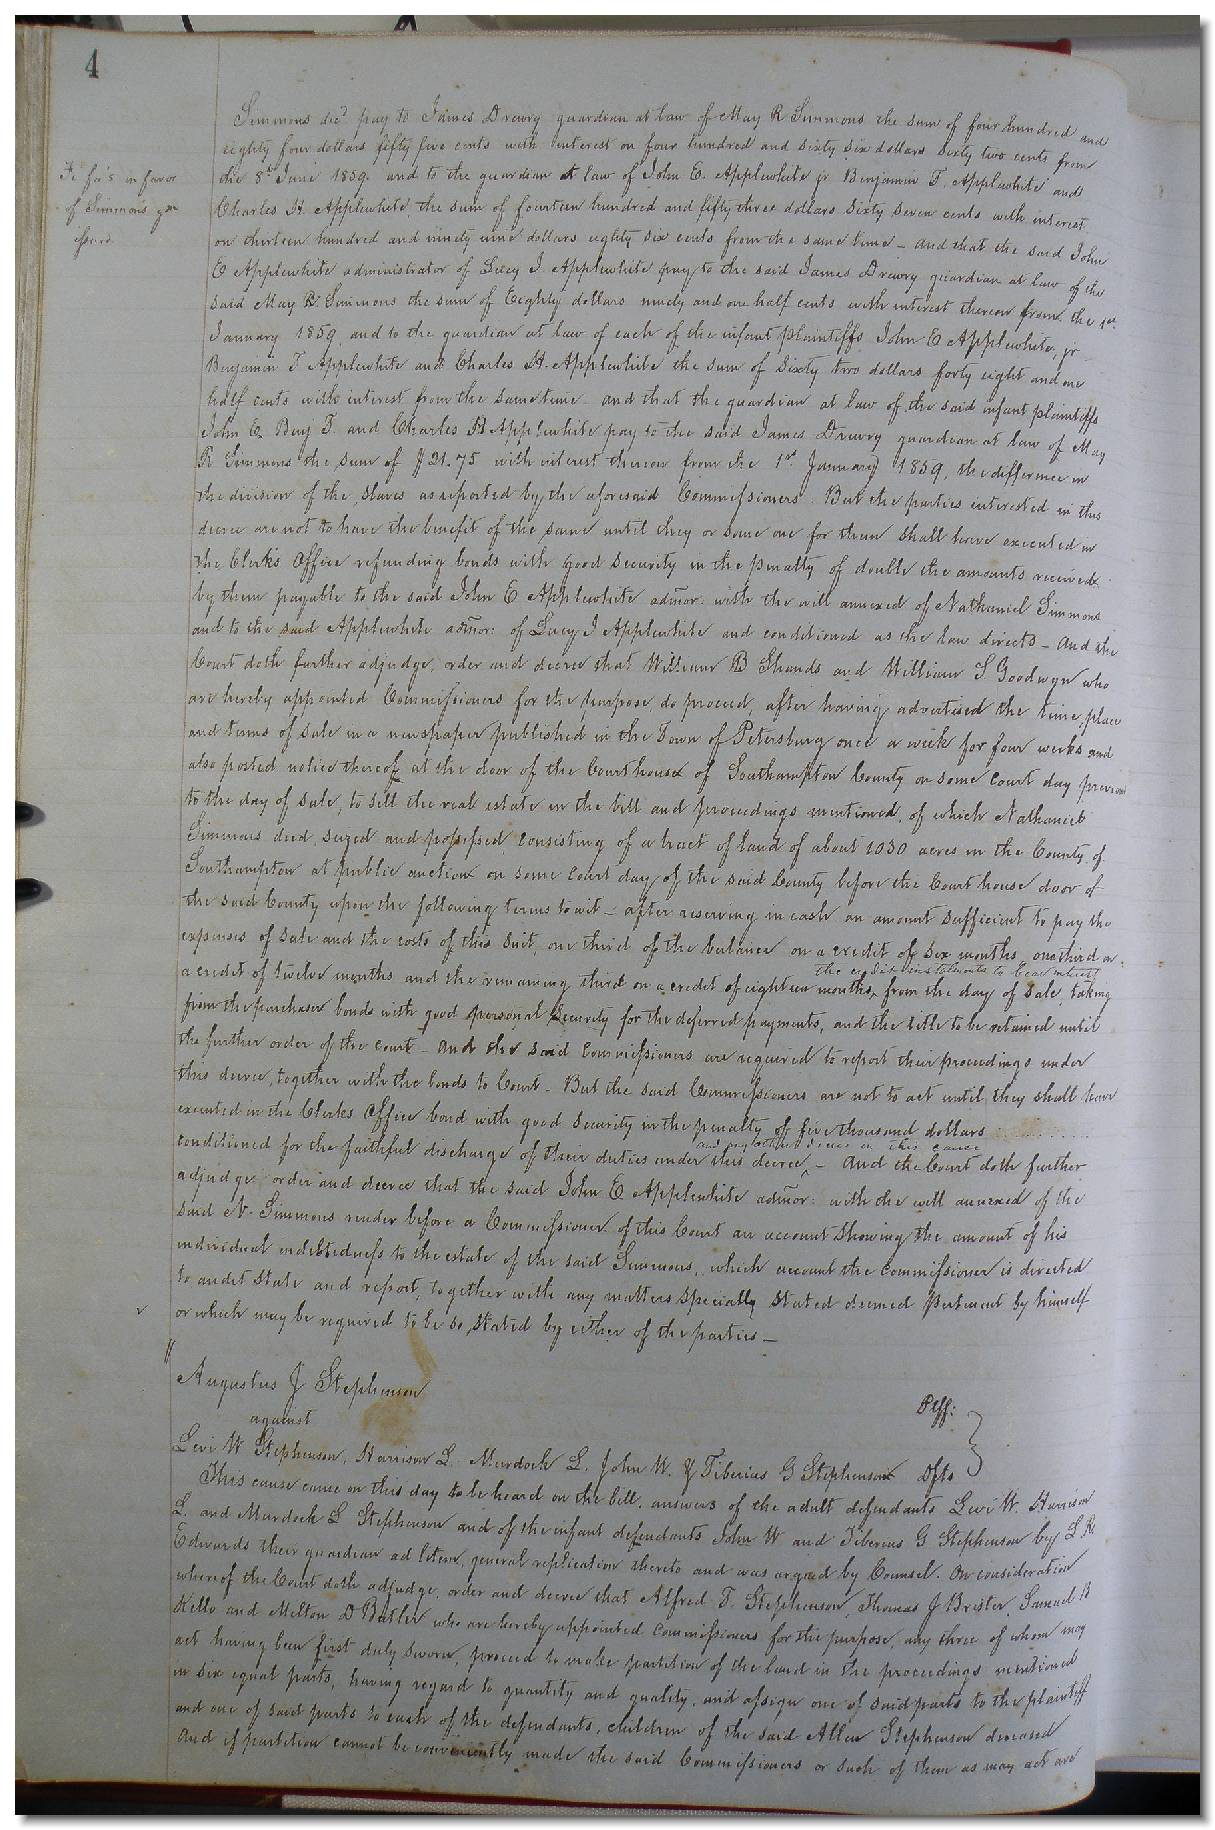 4
Simmons dec'd pay to James Drewry guardian at law of May R Simmons the sum of four hundred and
eighty four dollars fifty five cents with interest on four hundred and sixty six dollars sixty two cents from
the 8th June 1859. and to the guardian at law of John E. Applewhite jr. Benjamin F. Applewhite and
Charles H. Applewhite the sum of fourteen hundred and fifty three dollars sixty seven cents with interest
on thirteen hundred and ninety nine dollars eighty six cents from the same time – and that the said John
E Applewhite administrator of Lucy J. Applewhite pay to the said James Drewry guardian at law of the
said May R. Simmons the sum of Eighty dollars ninety and one half cents with interest thereon from the 1st
January 1859. and to the guardian at law of each of the infant plaintiffs John E Applewhite, jr
Benjamin F Applewhite and Charles H. Applewhite the sum of sixty two dollars forty eight and one
half cents with interest from the same time – and that the guardian at law of the said infant plaintiffs
John E. Benj F. and Charles H Applewhite pay to the said James Drewry guardian at law of May
R Simmons the sum of $21.75 with interest thereon from the 1st January 1859, the difference in
the division of the slaves as reported by the aforesaid Commissioners. But the parties interested in this
decree are not to have the benefit of the same until they or some one for them shall have executed in
the Clerk's Office refunding bonds with good security in the penalty of double the amounts received
by them payable to the said John E Applewhite admor. with the will annexed of Nathaniel Simmons
and to the said Applewhite admor: of Lucy J Applewhite and conditioned as the law directs – And the
Court doth further adjudge, order and decree that William B Shands and William S Goodwyn who
are hereby appointed Commissioners for the purpose, do proceed, after having advertised the time, place
and terms of sale in a newspaper published in the Town of Petersburg once a week for four weeks and
also posted notice thereof at the door of the Courthouse of Southampton County on some Court day previous
to the day of sale, to sell the real estate in the bill and proceedings mentioned, of which Nathaniel
Simmons died, seized and possessed consisting of a tract of land of about 1030 acres in the County of
Southampton at public auction on some Court day of the said County before the Court house door of
the said County upon the following terms to wit – after reserving in cash an amount sufficient to pay the
expenses of sale and the costs of this suit, one third of the balance on a credit of six months, one third on
a credit of twelve months and the remaining third on a credit of eighteen months, from the day of sale, taking
the credit instalments to bear interest
from the purchaser bonds with good personal security for the deferred payments, and the title to be retained until
the further order of the court – And the said Commissioners are required to report their proceedings under
this decree, together with the bonds to Court – But the said Commissioners are not to act until they shall have
executed in the Clerks Office bond with good security in the penalty of five thousand dollars
conditioned for the faithful discharge of their duties under this decree, – And the Court doth further
and any other decree in this cause
adjudge, order and decree that the said John E Applewhite admor: with the will annexed of the
said N. Simmons render before a Commissioner of this Court an account showing the amount of his
individual indebtedness to the estate of the said Simmons, which account the commissioner is directed
to audit state and report, together with any matters specially stated deemed pertinent by himself
or which may be required to be so stated by either of the parties –
Fi fa's in favor
of Simmons gdn
issued
Augustus J Stephenson
Plff:
against
Levi W Stephenson, Harrison L. Murdock L. John W. & Tiberius G Stephenson Dfts
This cause came on this day to be heard on the bill, answers of the adult defendants Levi W. Harrison
L. and Murdock L Stephenson and of the infant defendants John W and Tiberius G Stephenson by L R
Edwards their guardian ad litem, general replication thereto and was argued by Counsel. On consideration
whereof the Court doth adjudge, order and decree that Alfred T. Stephenson, Thomas J Brister, Samuel B
Kello and Melton D Butler who are hereby appointed commissioners for the purpose, any three of whom may
act having been first duly sworn, proceed to make partition of the land in the proceedings mentioned
in six equal parts, having regard to quantity and quality, and assign one of said parts to the plaintiff
and one of said parts to each of the defendants, children of the said Allen Stephenson deceased
And if partition cannot be conveniently made the said Commissioners or such of them as may act are